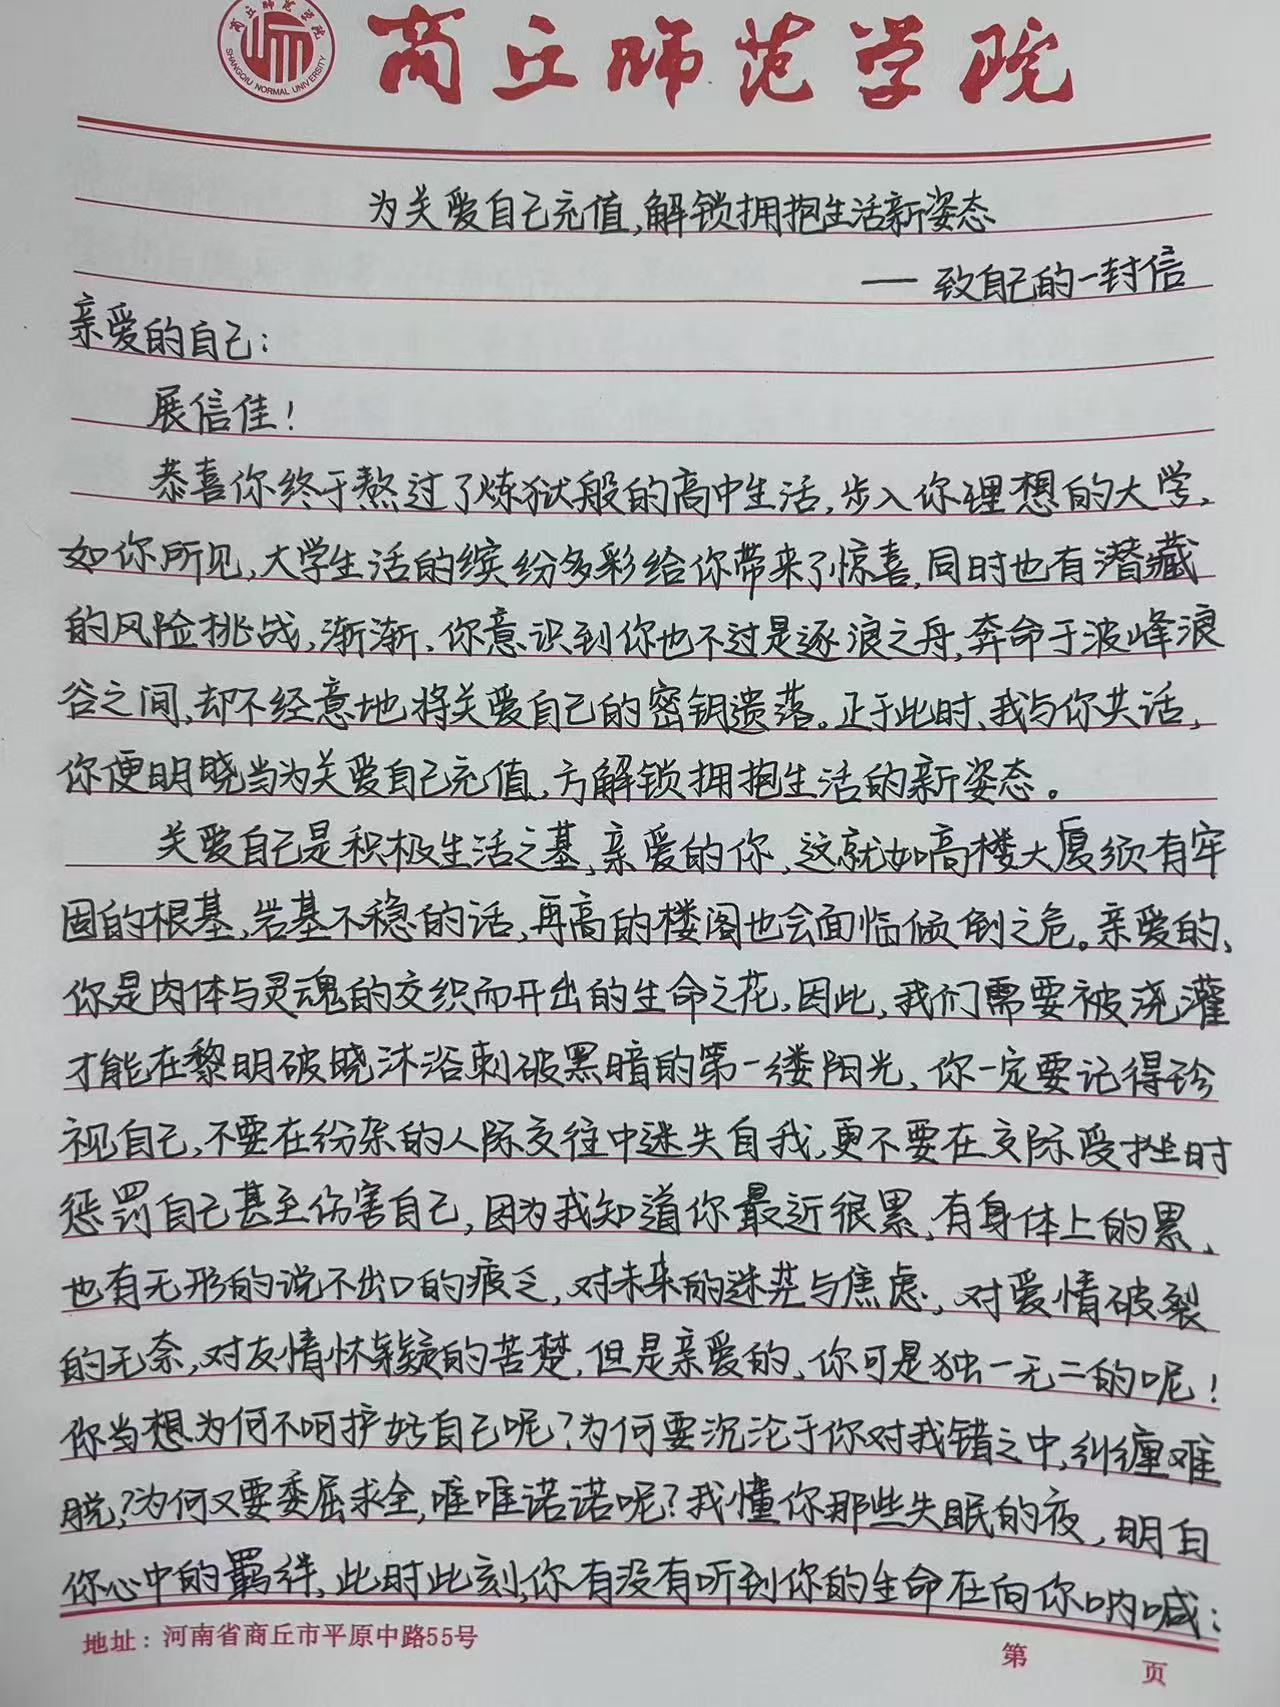 商丘师范学院
SHANGQIU NORMAL UNIVERSITY
为关爱自己充值,解锁拥抱生活新姿态
——致自己的一封信
亲爱的自己:
展信佳!
恭喜你终于熬过了炼狱般的高中生活,步入你理想的大学,
如你所见,大学生活的缤纷多彩给你带来了惊喜,同时也有潜藏
的风险挑战,渐渐,你意识到你也不过是逐浪之舟,奔命于波峰浪
谷之间,却不经意地将关爱自己的密钥遗落。正于此时,我与你共话,
你便明晓当为关爱自己充值,方解锁拥抱生活的新姿态。
关爱自己是积极生活之基,亲爱的你,这就如高楼大厦须有牢
固的根基,若基不稳的话,再高的楼阁也会面临倾倒之危。亲爱的,
你是肉体与灵魂的交织而开出的生命之花,因此,我们需要被浇灌
才能在黎明破晓沐浴刺破黑暗的第一缕阳光,你一定要记得珍
视自己,不要在纷杂的人际交往中迷失自我,更不要在交际受挫时
惩罚自己甚至伤害自己,因为我知道你最近很累,有身体上的累,
也有无形的说不出口的疲乏,对未来的迷茫与焦虑,对爱情破裂
的无奈,对友情怀疑的苦楚,但是亲爱的,你可是独一无二的呢!
你当想为何不呵护好自己呢?为何要沉沦于你对我错之中,纠缠难
脱?为何又要委屈求全,唯唯诺诺呢?我懂你那些失眠的夜,明白
你心中的羁绊,此时此刻,你有没有听到你的生命在向你呐喊:
地址:河南省商丘市平原中路55号
第 页